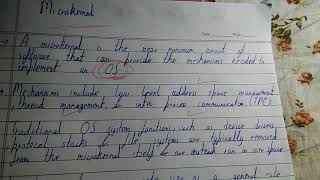 Microkernal
A microkernel is the near-minimum amount of
software that can provide the mechanisms needed to
implement an OS.
Mechanisms include low level address space management,
thread management, & inter process communication (IPC)
Traditional OS system functions, such as device drivers
protocol stacks & file systems are typically removed
from the microkernel itself & are instead run in user space
size as a general rule